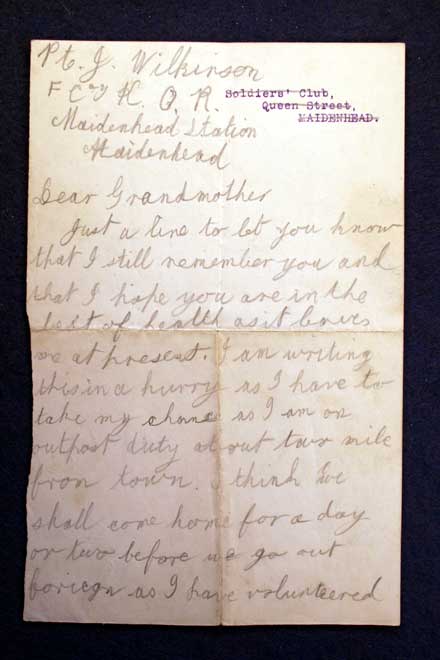 Pt. J. Wilkinson
F Coy K. O. R.
Maidenhead Station
Maidenhead
Soldiers' Club,
Queen Street,
MAIDENHEAD.
Dear Grandmother
Just a line to let you know
that I still remember you and
that I hope you are in the
best of health as it leaves
me at present. I am writing
this in a hurry as I have to
take my chance as I am on
outpost duty about two mile
from town. I think we
shall come home for a day
or two before we go out
foriegn as I have volunteered